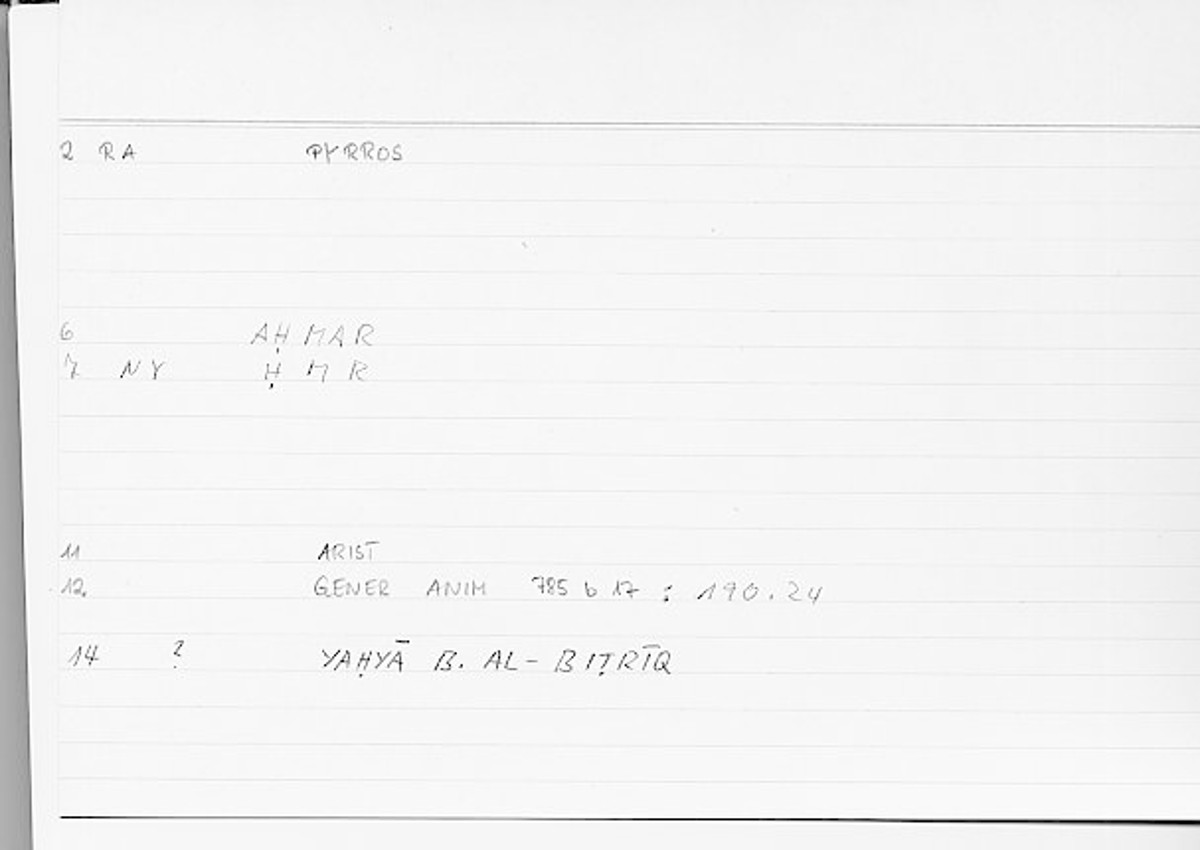 2 RA PYRROS
6 AḤMAR
7 NY Ḥ M R
11 ARIST
12. GENER ANIM 785 b 17 : 190.24
14 ? YAḤYĀ B. AL-BIṬRĪQ